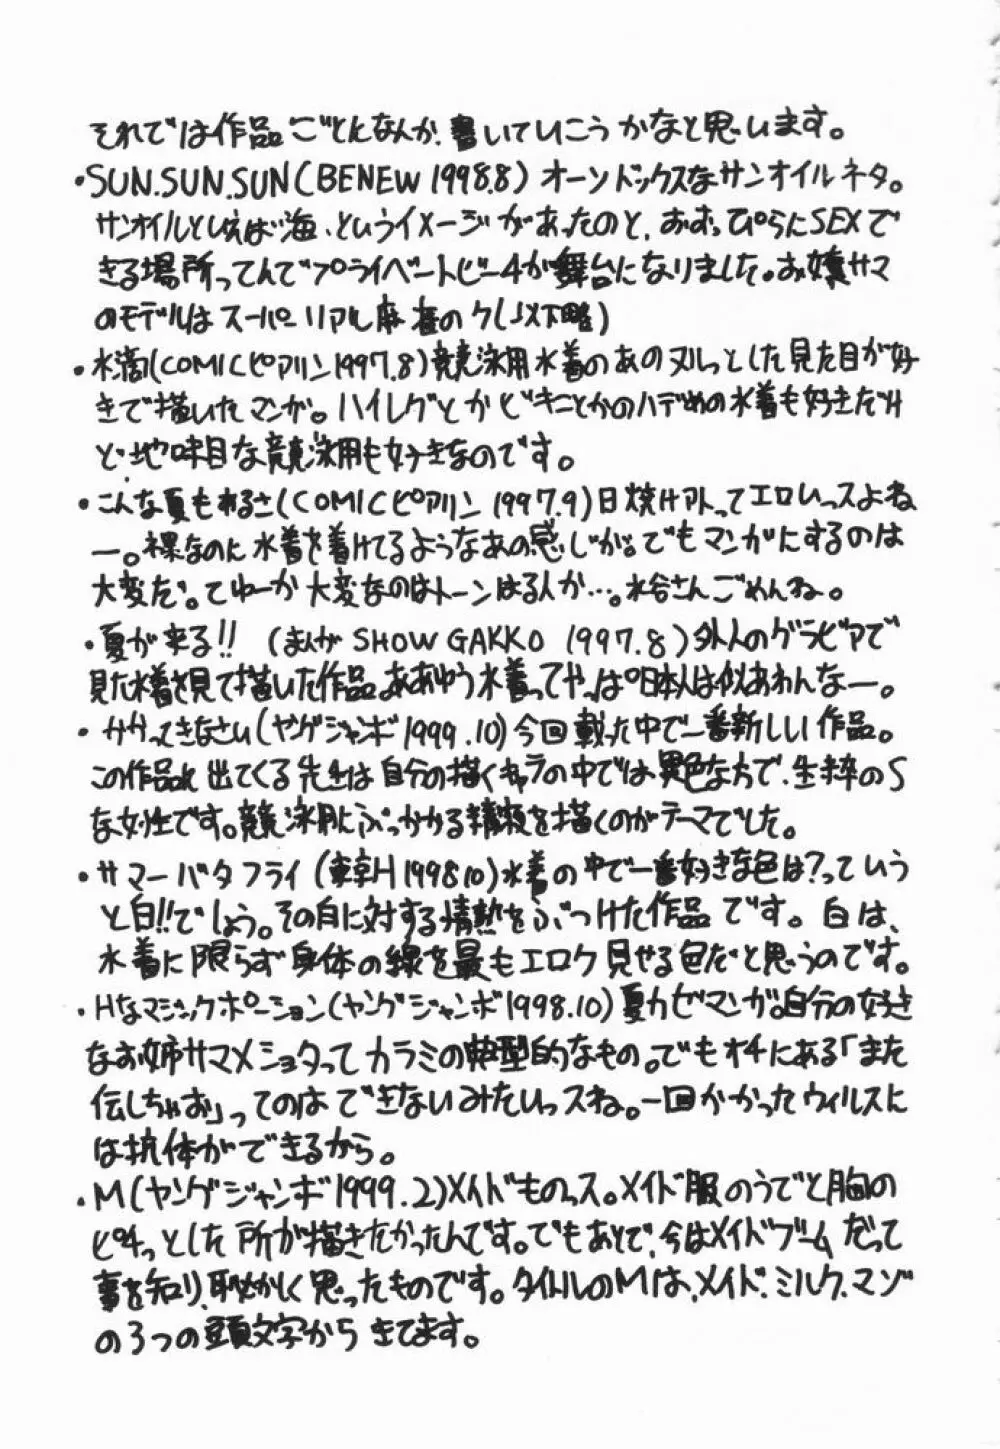 それでは作品ごとになんか、書いていこうかなと思います。
・SUN.SUN.SUN(BENEW 1998.8) オーソドックスなサンオイルネタ。
サンオイルといえば海、というイメージがあったのと、おおっぴらにSEXで
きる場所ってんでプライベートビーチが舞台になりました。お嬢サマ
のモデルはスーパーリアル麻雀のク(以下略)
・水滴(COMICピアリン1997.8)競泳用水着のあのヌルっとした見た目が好
きで描いたマンガ。ハイレグとかビキニとかのハデめの水着も好きだけ
ど、地味目な競泳用も好きなのです。
・こんな夏もわるさ(COMICピアリン 1997.9)日焼けアトってエロいっスよね
ー。裸なのに水着を着けてるようなあの感じが。でもマンガにするのは
大変だ。てゆーか大変なのはトーンはる人か…。水谷さんごめんね。
・夏が来る!! (まんがSHOW GAKKO 1997.8)外人のグラビアで
見た水着を見て描いた作品。ああゆう水着ってやっぱ日本人は似あわんなー。
・かかってきなさい(ヤングジャンボ1999.10)今回載った中で一番新しい作品。
この作品に出てくる先生は自分の描くキャラの中では異色な方で、生粋のS
な女性です。競泳用にぶっかかる精液を描くのがテーマでした。
・サマーバタフライ(東京H1998.10)水着の中で一番好きな色は?っていう
と白!!でしょう。その白に対する情熱をぶつけた作品です。白は、
水着に限らず身体の線を最もエロク見せる色だと思うのです。
・Hなマジックポーション(ヤングジャンボ1998.10)夏カゼマンガ。自分の好き
なお姉サマメショタってカラミの典型的なもの。でもオチにある「また
伝しちゃお」ってのはできないみたいっスね。一回かかったウィルスに
は抗体ができるから。
・M(ヤングジャンボ1999.2)メイドものっス。メイド服のうでと胸の
ピチっとした所が描きたかったんです。でもあとで、今はメイドブームだって
事を知り、恥ずかしく思ったものです。タイトルのMは、メイド、ミルク、マゾ
の3つの頭文字からきてます。